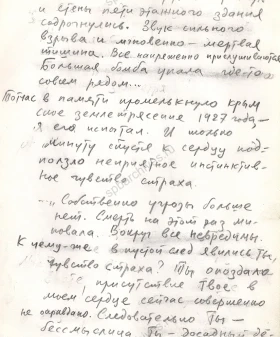 и стены пяти этажного здания
содрогнулись. Звук сильного
взрыва и мгновенно – мертвая
тишина. Все напряженно прислушиваются
Большая бомба упала где-то
совсем рядом...
Тотчас в памяти промелькнуло крым
ское землетрясение 1927 года –
я его испытал. И только
минуту спустя к сердцу под-
ползло неприятное инстинктив-
ное чувство страха.
– „Собственно угрозы больше
нет. Смерть на этот раз ми-
новала. Вокруг все невредимы.
К чему-же в пустой след явились Ты,
чувство страха? Ты опоздало
, присутствие Твое в
моем сердце сейчас совершенно
не оправдано. Следовательно Ты –
бессмыслица. Ты – досадный де-